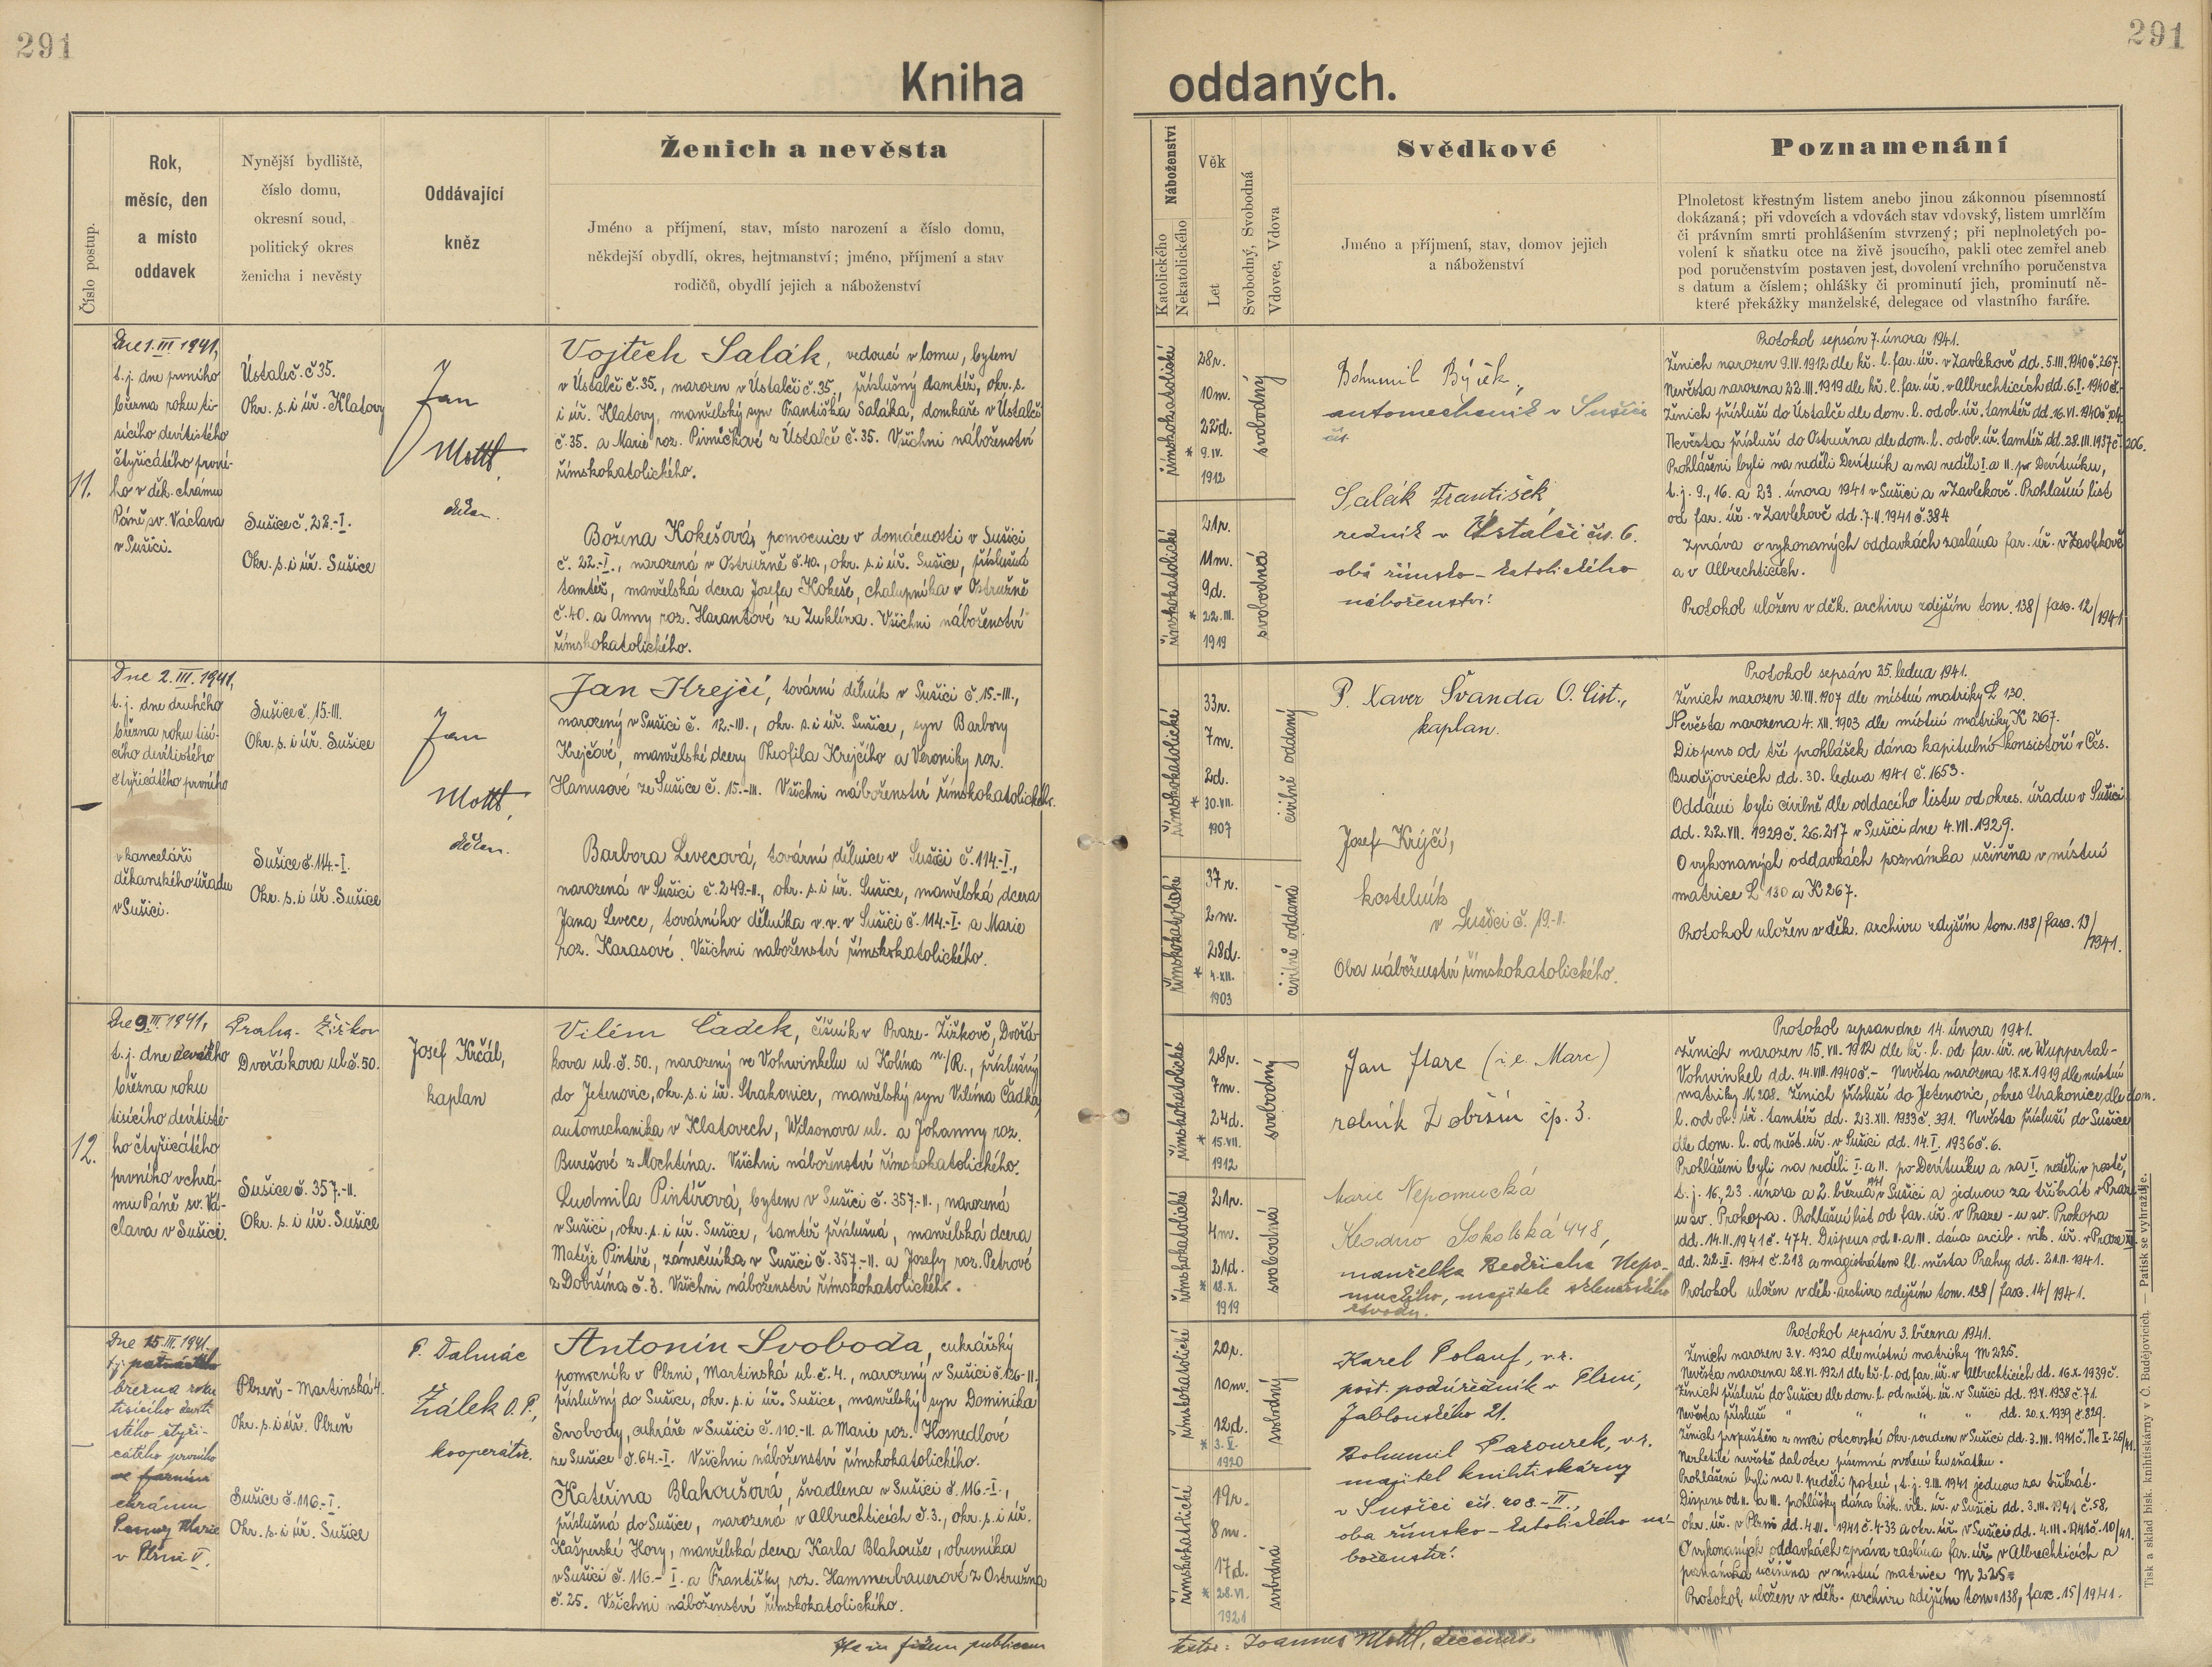 291
291
Kniha oddaných.
Číslo postup.
Rok,
měsíc, den
a místo
oddavek
Nynější bydliště,
číslo domu,
okresní soud,
politický okres
ženicha i nevěsty
Oddávající
kněz
Ženich a nevěsta
Jméno a příjmení, stav, místo narození a číslo domu,
někdejší obydlí, okres, hejtmanství; jméno, příjmení a stav
rodičů, obydlí jejich a náboženství
Náboženství
Katolického
Nekatolického
Věk
Let
Svobodný, Svobodná
Vdovec, Vdova
Svědkové
Jméno a příjmení, stav, domov jejich
a náboženství
Poznamenání
Plnoletost křestným listem anebo jinou zákonnou písemností
dokázaná; při vdovcích a vdovách stav vdovský, listem umrlčím
či právním smrti prohlášením stvrzený; při neplnoletých po-
volení k sňatku otce na živě jsoucího, pakli otec zemřel aneb
pod poručenstvím postaven jest, dovolení vrchního poručenstva
s datum a číslem; ohlášky či prominutí jich, prominutí ně-
které překážky manželské, delegace od vlastního faráře.
11.
Dne 1. III 1941,
t. j. dne prvního
března roku ti-
sícího devítistého
čtyřicátého první-
ho v děk. chrámu
Páně sv. Václava
v Sušici.
Ústaleč č. 35.
Okr. s. i úř. Klatovy
Sušice č. 22.-I.
Okr. s. i úř. Sušice
Jan
Mottl,
děkan.
Vojtěch Salák, vedoucí v lomu, bytem
v Ústalči č. 35., narozen v Ústalči č. 35, příslušný tamtéž, okr. s.
i úř. Klatovy, manželský syn Františka Saláka, domkaře v Ústalči
č. 35. a Marie roz. Pivničkové z Ústalčí č. 35. Všichni náboženství
římskokatolického.
Božena Kokešová, pomocnice v domácnosti v Sušici
č. 22.-I., narozená v Ostružně č. 40., okr. s. i úř. Sušice, příslušná
tamtéž, manželská dcera Josefa Kokeše, chalupníka v Ostružně
č. 40. a Anny roz. Harantové ze Zuklína. Všichni náboženství
římskokatolického.
římskokatolické
28 r.
10 m.
22 d.
* 9. IV.
1912
svobodný
římskokatolické
21 r.
11 m.
9 d.
* 22. III.
1919
svobodná
Bohumil Býček,
automechanik v Sušici
čís.
Salák František
řezník v Ústalči čís. 6.
oba římsko-katolického
náboženství.
Protokol sepsán 7. února 1941.
Ženich narozen 9. IV. 1912 dle kř. l. far. úř. v Zavlekově dd. 5. III. 1940 č. 267.
Nevěsta narozena 22. III. 1919 dle kř. l. far. úř. v Albrechticích dd. 6. I. 1940 č.-
Ženich přísluší do Ústalče dle dom. l. od ob. úř. tamtéž dd. 16. VI. 1940 č. 104.
Nevěsta přísluší do Ostružna dle dom. l. od ob. úř. tamtéž dd. 28. III. 1937 č. 206.
Prohlášeni byli na neděli Devítník a na neděli I. a II. po Devítníku,
t. j. 9., 16. a 23. února 1941 v Sušici a v Zavlekově. Prohlašní list
od far. úř. v Zavlekově dd. 7. II. 1941 č. 384
Zpráva o vykonaných oddavkách zaslána far. úř. v Zavlekově
a v Albrechticích.
Protokol uložen v děk. archivu zdejším tom. 138/ fasc. 12/1941
Dne 2. III. 1941,
t. j. dne druhého
března roku tisí-
cího devítistého
čtyřicátého prvního
v kanceláři
děkanského úřadu
v Sušici.
Sušice č. 15.-III.
Okr. s. i úř. Sušice
Sušice č. 114.-I.
Okr. s. i úř. Sušice
Jan
Mottl,
děkan.
Jan Krejčí, tovární dělník v Sušici č. 15.-III.,
narozený v Sušici č. 12.-III., okr. s. i úř. Sušice, syn Barbory
Krejčové, manželské dcery Theofila Krejčího a Veroniky roz.
Hanusové ze Sušice č. 15.-III. Všichni náboženství římskokatolického.
Barbora Levecová, tovární dělnice v Sušici č. 114.-I.,
narozená v Sušici č. 249.-II., okr. s. i úř. Sušice, manželská dcera
Jana Levece, továrního dělníka v. v. v Sušici č. 114.-I. a Marie
roz. Karasové. Všichni naboženství římskokatolického.
římskokatolické
33 r.
7 m.
2 d.
* 30. VII.
1907
civilně oddaný
římskokatolické
37 r.
2 m.
28 d.
* 4. XII.
1903
civilně oddaná
P. Xaver Švanda O. Cist.,
kaplan.
Josef Krýčí,
kostelník
v Sušici č. 19.-II.
Oba náboženství římskokatolického.
Protokol sepsán 25. ledna 1941.
Ženich narozen 30. VII. 1907 dle místní matriky L 130.
Nevěsta narozena 4. XII. 1903 dle místní matriky K 267.
Dispens od tří prohlášek dána kapitulní konsistoří v Čes.
Budějovicích dd. 30. ledna 1941 č. 1653.
Oddáni byli civilně dle oddacího listu od okres. úřadu v Sušici
dd. 22. VII. 1929 č. 26.217 v Sušici dne 4. VII. 1929.
O vykonaných oddavkách poznámka učiněna v místní
matrice L 130 a K 267.
Protokol uložen v děk. archivu zdejším tom. 138/ fasc. 13/1941.
12.
Dne 9. III 1941,
t. j. dne devátého
března roku
tisícího devítisté-
ho čtyřicátého
prvního v chrá-
mu Páně sv. Vá-
clava v Sušici.
Praha-Žižkov
Dvořákova ul. č. 50.
Sušice č. 357.-II.
Okr. s. i úř. Sušice
Josef Krčál,
kaplan
Vilém Čadek, číšník v Praze-Žižkově, Dvořá-
kova ul. č. 50., narozený ve Vohwinkelu u Kolína n./R., příslušný
do Jetenovic, okr. s. i úř. Strakonice, manželský syn Viléma Čadka,
automechanika v Klatovech, Wilsonova ul. a Johanny roz.
Burešové z Mochtína. Všichni náboženství římskokatolického.
Ludmila Pintířová, bytem v Sušici č. 357.-II., narozená
v Sušici, okr. s. i úř. Sušice, tamtéž příslušná, manželská dcera
Matěje Pintíře, zámečníka v Sušici č. 357.-II. a Josefy roz. Petrové
z Dobršína č. 3. Všichni náboženství římskokatolického.
římskokatolické
28 r.
7 m.
24 d.
* 15. VII.
1912
svobodný
římskokatolické
21 r.
4 m.
21 d.
* 18. X.
1919
svobodná
Jan Marc (i. e. Marc)
rolník Dobršín čp. 3.
Marie Nepomucká
Kladno Sokolská 448,
manželka Bedřicha Nepo-
muckého, majitele sklenářského
závodu.
Protokol sepsan dne 14. února 1941.
Ženich narozen 15. VII. 1912 dle kř. l. od far. úř. ve Wuppertal-
Vohwinkel dd. 14. VIII. 1940 č.- Nevěsta narozena 18. X. 1919 dle místní
matriky M 208. Ženich přísluší do Jetenovic, okres Strakonice, dle dom.
l. od ob. úř. tamtéž dd. 23. XII. 1933 č. 391. Nevěsta přísluší do Sušice
dle dom. l. od měst. úř. v Sušici dd. 14. I. 1936 č. 6.
Prohlášeni byli na neděli I. a II. po Devítníku a na I. neděli v postě,
t. j. 16., 23. února a 2. března 1941 v Sušici a jednou za třikrát v Praze
u sv. Prokopa. Prohlašní list od far. úř. v Praze - u sv. Prokopa
dd. 14. II. 1941 č. 474. Dispens od II. a III. dána arcib. vik. úř. v Praze
dd. 22. II. 1941 č. 218 a magistrátem hl. města Prahy dd. 21. II. 1941.
Protokol uložen v děk. archivu zdejším tom. 138/ fasc. 14/1941.
Dne 15. III. 1941.
t. j. patnáctého
března roku
tisícího devíti
stého čtyři-
cátého prvního
ve farním
chrámu
Panny Marie
v Plzni V.
Plzeň - Martinská 4.
Okr. s. i úř. Plzeň
Sušice č. 116.-I.
Okr. s. i úř. Sušice
P. Dalmác
Žálek O. P.,
kooperátor.
Antonín Svoboda, cukrářský
pomocník v Plzni, Martinská ul. č. 4., narozený v Sušici č. 126-II.
příslušný do Sušice, okr. s. i úř. Sušice, manželský syn Dominika
Svobody, cukráře v Sušici č. 110.-II a Marie roz. Hosnedlové
ze Sušice č. 64.-I. Všichni náboženství římskokatolického.
Kateřina Blahoušová, švadlena v Sušici č. 116.-I.,
příslušná do Sušice, narozená v Albrechticích č. 3., okr. s. i úř.
Kašperské Hory, manželská dcera Karla Blahouše, obuvníka
v Sušici č. 116.-I. a Františky roz. Hammerbauerové z Ostružna
č. 25. Všichni náboženství římskokatolického.
římskokatolické
20 r.
10 m.
12 d.
* 3. V.
1920
svobodný
římskokatolické
19 r.
8 m.
17 d.
* 28. VI.
1921
svobodná
Karel Polauf, v. r.
pošt. podúředník v Plzni,
Jablonského 21.
Bohumil Pazourek, v. r.
majitel knihtiskárny
v Sušici čís. 208.-II.,
oba římsko-katolického ná-
boženství.
Protokol sepsán 3. března 1941.
Ženich narozen 3. V. 1920 dle místní matriky M 225.
Nevěsta narozena 28. VI. 1921 dle kř. l. od far. úř. v Albrechticích dd. 16. X. 1939 č.
Ženich přísluší do Sušice dle dom. l. od měst. úř. v Sušici dd. 19. V. 1938 č. 71.
Nevěsta přísluší " " " " dd. 20. X. 1939 č. 829.
Ženich propuštěn z moci otcovské okr. soudem v Sušici dd. 3. III. 1941 č. Nc I-26/41.
Nezletilé nevěstě dal otec písemné svolení ku sňatku.
Prohlášeni byli na II. neděli postní, t. j. 9. III. 1941 jednou za třikrát.
Dispens od II. a III. prohlášky dána bisk. vik. úř. v Sušici dd. 3. III. 1941 č. 58,
okr. úř. v Plzni dd. 4. III. 1941 č. 4-33 a okr. úř. v Sušici dd. 4. III. 1941 č. 10/41.
O vykonaných oddavkách zpráva zaslána far. úř. v Albrechticích a
poznámka učiněna v místní matrice M 225.
Protokol uložen v děk. archivu zdejším tom. 138, fasc. 15/1941.
Ita in fidem publicam
testor: Joannes Mottl, decanus.
Tisk a sklad bisk. knihtiskárny v Č. Budějovicích. — Patisk se vyhražuje.